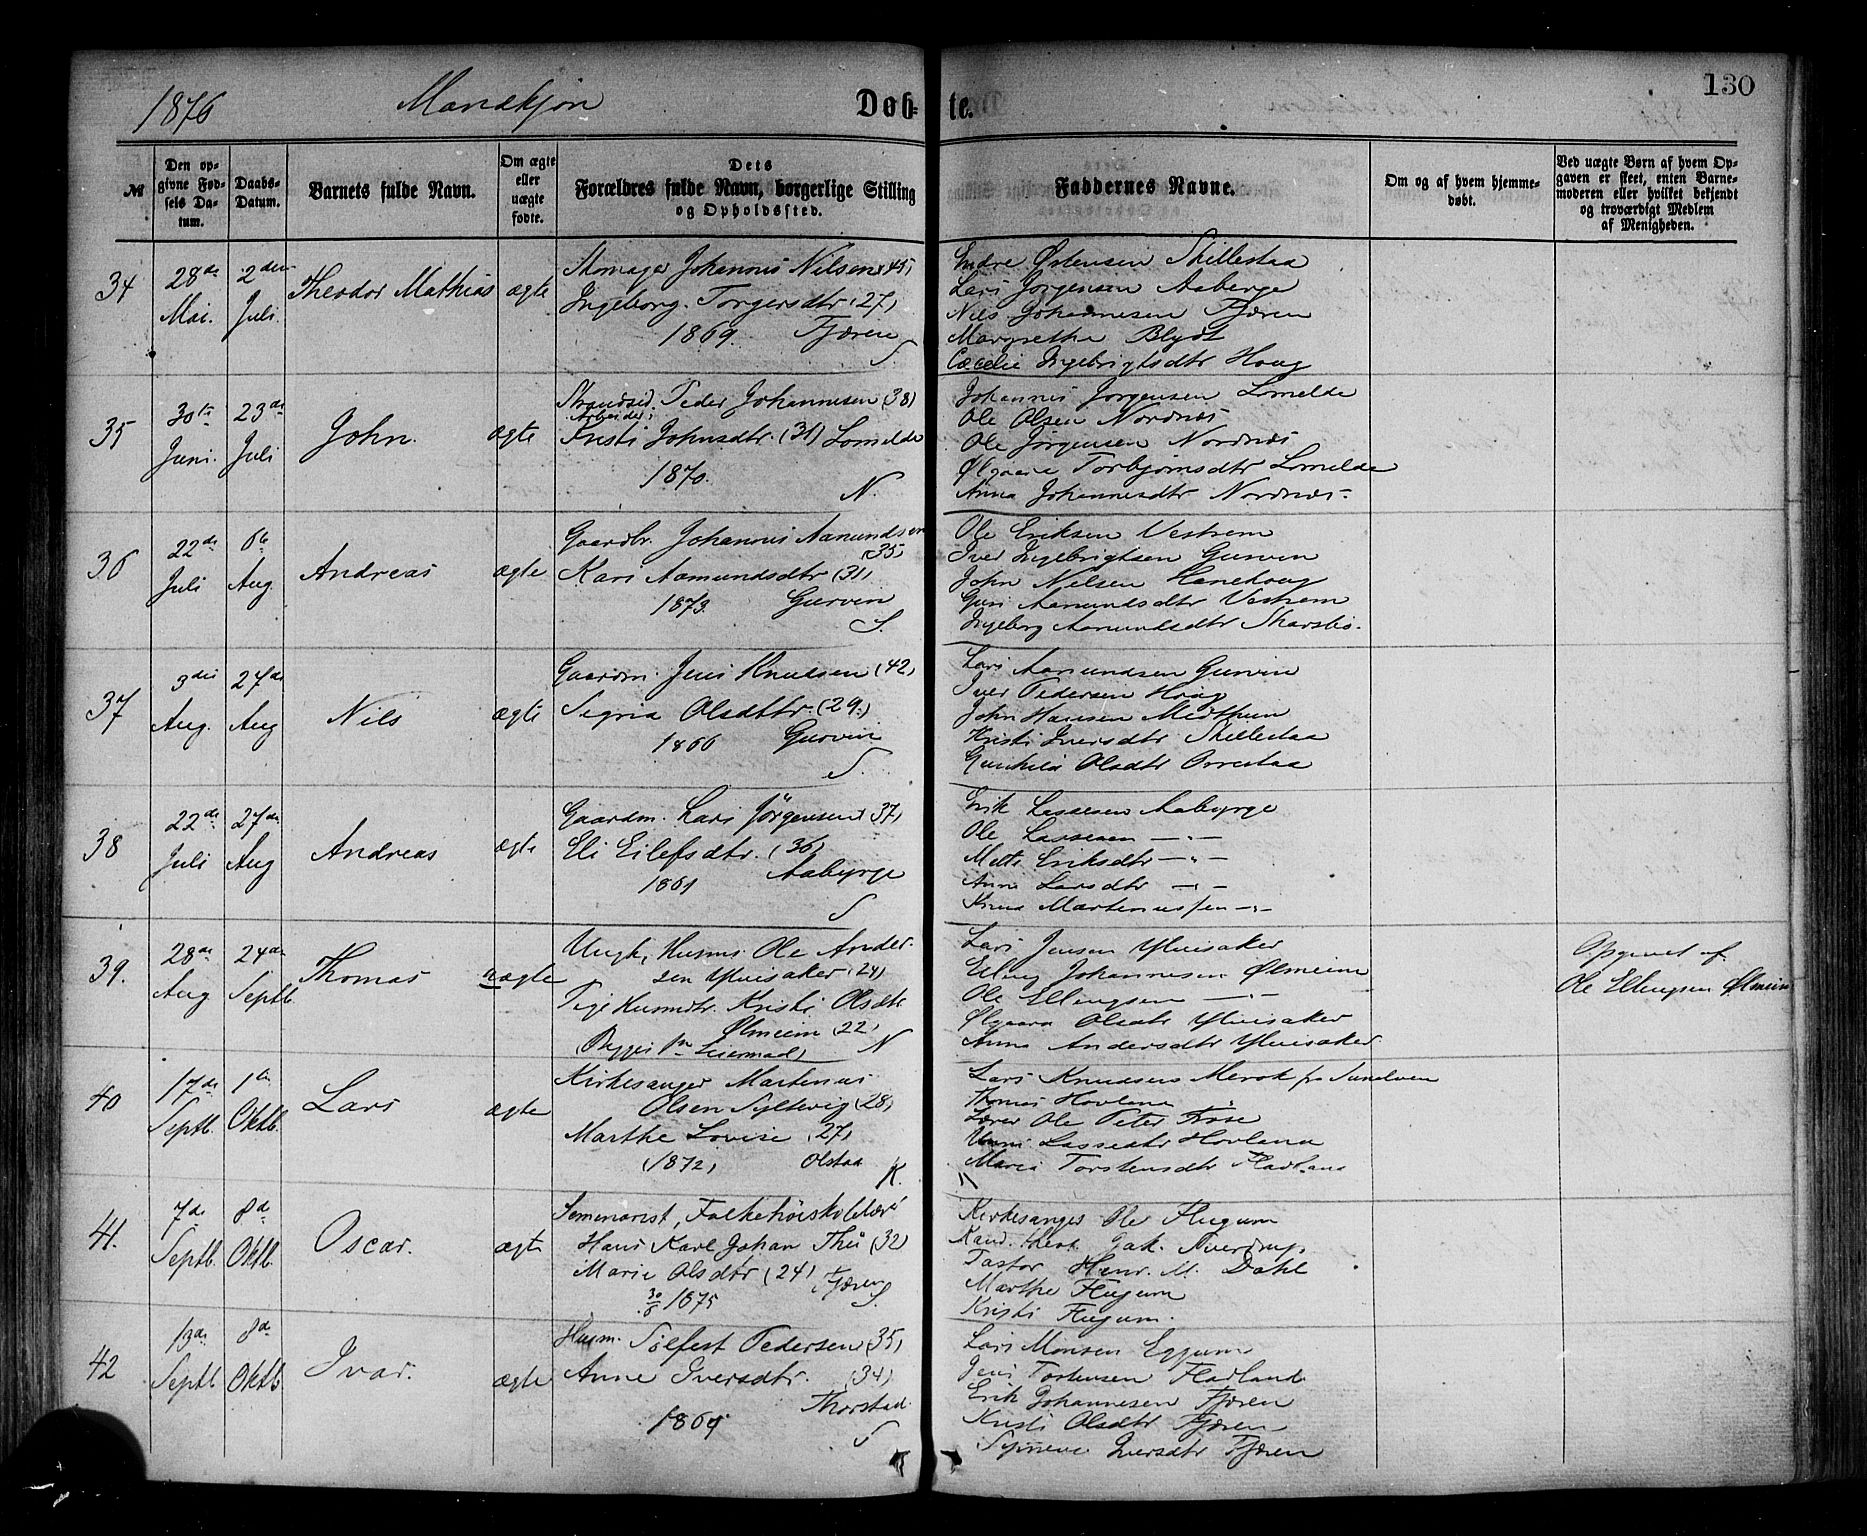 1876 Mandkjøn Døbte. 130
№
Den opgivne Fødsels Datum.
Daabs-Datum.
Barnets fulde Navn.
Om ægte eller uægte fødte.
Dets Forældres fulde Navn, borgerlige Stilling og Opholdssted.
Faddernes Navne.
Om og af hvem hjemmedøbt.
Ved uægte Børn af hvem Opgaven er skeet, enten Barnemoderen eller hvilket bekjendt og troværdigt Medlem af Menigheden.
34 28de Mai. 2den Juli. Theodor Mathias ægte
Skomager Johannes Nilsen (45)
Ingeborg Torgersdtr (27)
1869. Fjæren
S
Endre Østensen Skillestaa
Lars Jørgensen Aaberge
Nils Johannesen Fjæren
Margrethe Blydt
Cecelie Ingebrigtsdtr Haug
35 30te Juni. 23de Juli John. ægte
Strandsid. Peder Johannesen (38)
Arbeider;
Kristi Johnsdtr. (31) Lomelde
1870.
N.
Johannes Jørgensen Lomelde
Ole Olsen Nordnæs
Ole Jørgensen Nordnæs
Ølgaare Torbjørnsdtr Lomelde
Anna Johannesdtr Nordnæs.
36 22de Juli 6te Aug. Andreas ægte
Gaardbr. Johannes Aamundsen
(35)
Kari Aamundsdtr (31)
1873. Gurvin
S.
Ole Eriksen Vestrem
Iver Ingebrigtsen Gurvin
John Nilsen Hanehaug
Guri Aamundsdtr Vestrem
Ingeborg Aamundsdtr Skarsbø.
37 3die Aug. 27de Aug Nils ægte
Gaardm. Jens Knudsen (42)
Sigrid Olsdtr. (29.)
1866 Gurvin
S.
Lars Aamundsen Gurvin
Iver Pedersen Haug
John Hansen Midthun
Kristi Iversdtr Skillestaa
Gunhild Olsdtr Orrestaa
38 22de Juli 27de Aug Andreas ægte
Gaardm. Lars Jørgensen (37)
Eli Eilefsdtr. (36)
1861 Aabyrge
S
Erik Lassesen Aabyrge
Ole Lassesen — " —
Mette Eriksdtr — " —
Anna Larsdtr — " —
Knud Martinussen — " —
39. 28de Aug 24de Septb. Thomas uægte
Ungk, Husms. Ole Ander-
sen Ylvisaker (24)
Pige Husmdtr. Kristi Olsdtr
Ølmeim (22)
(Begges 1ste Leiermaal) N
Lars Jensen Ylvisaker
Elling Johannesen Ølmeim
Ole Ellingsen — " —
Ølgaara Olsdtr Ylvisaker
Anna Andersdtr Ylvisaker
Opgivet af
Ole Ellingsen Ølmeim
40 17de Septb. 1ste Oktb. Lars ægte
Kirkesanger Martinus
Olsen Syltevig (28)
Marthe Lovise (27)
(1872) Olstaa
K.
Lars Knudsen Merok fra Sunelven
Thomas Hovland
Lærer Ole Peter
Unni Lassedtr Hovland
Maria Torstensdtr Fladland
41. 7de Septb. 8de Oktb. Oscar. ægte
Seminarist, Folkehøiskolelærer
Hans Karl Johan Thiis (32)
Marie Olsdtr (24) Fjæren
30/6 1875 S.
Kirkesanger Ole Flugum
Kand. theol. Jak. Sverdrup
Pastor Henr. M. Dahl
Marthe Flugum
Kristi Flugum.
42 13de Septb. 8de Oktb. Ivar. ægte
Husm. Sølfest Pedersen (35)
Anne Iversdtr. (34)
Thorstad.
S
Lars Monsen Eggum
Jens Torstensen Fladland
Erik Johannesen Fjæren
Kristi Olsdtr Fjæren
Synneve Iversdtr Fjæren